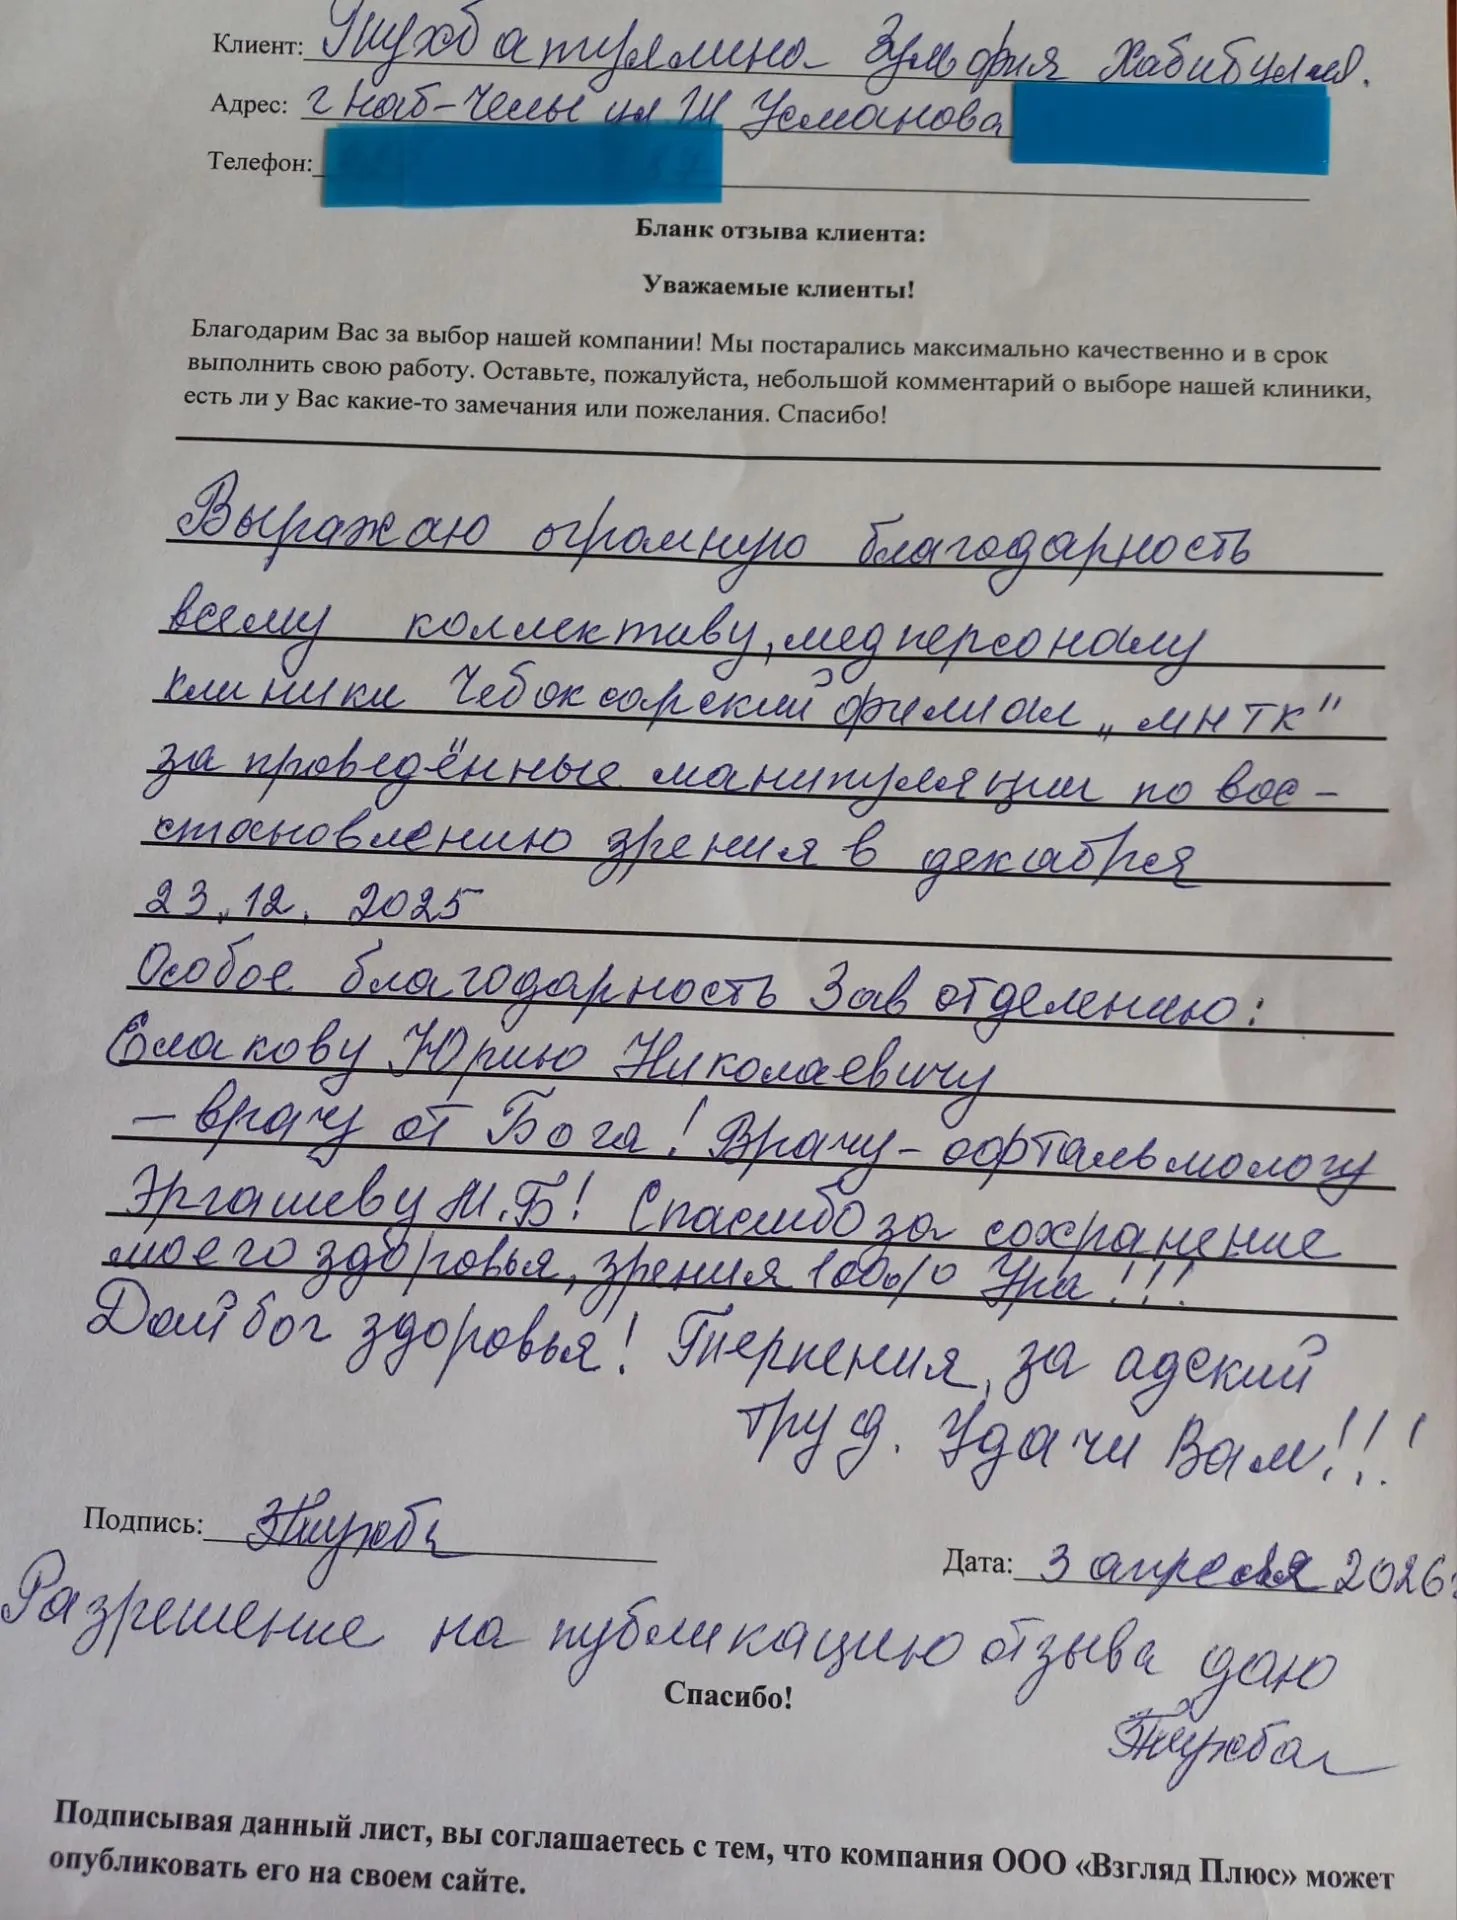 Клиент: Тухбатуллина Зульфия Хабибулл.
Адрес: г Наб-Челны ул. Ш Усманова
Телефон:
Бланк отзыва клиента:
Уважаемые клиенты!
Благодарим Вас за выбор нашей компании! Мы постарались максимально качественно и в срок
выполнить свою работу. Оставьте, пожалуйста, небольшой комментарий о выборе нашей клиники,
есть ли у Вас какие-то замечания или пожелания. Спасибо!
Выражаю огромную благодарность
всему коллективу, медперсоналу
клиники Чебоксарский филиал „МНТК"
за проведённые манипуляции по вос-
становлению зрения в декабря
23.12. 2025
Особое благодарность Зав отделению:
Елакову Юрию Николаевичу
- врачу от Бога! Врачу-офтальмологу
Эргашеву М.Б! Спасибо за сохранение
моего здоровья, зрения 100% Ура!!!
Дай бог здоровья! Терпения, за адский
труд. Удачи Вам!!!
Подпись:
Дата: 3 апреля 2026г
Разрешение на публикацию отзыва даю
Спасибо!
Подписывая данный лист, вы соглашаетесь с тем, что компания ООО «Взгляд Плюс» может
опубликовать его на своем сайте.